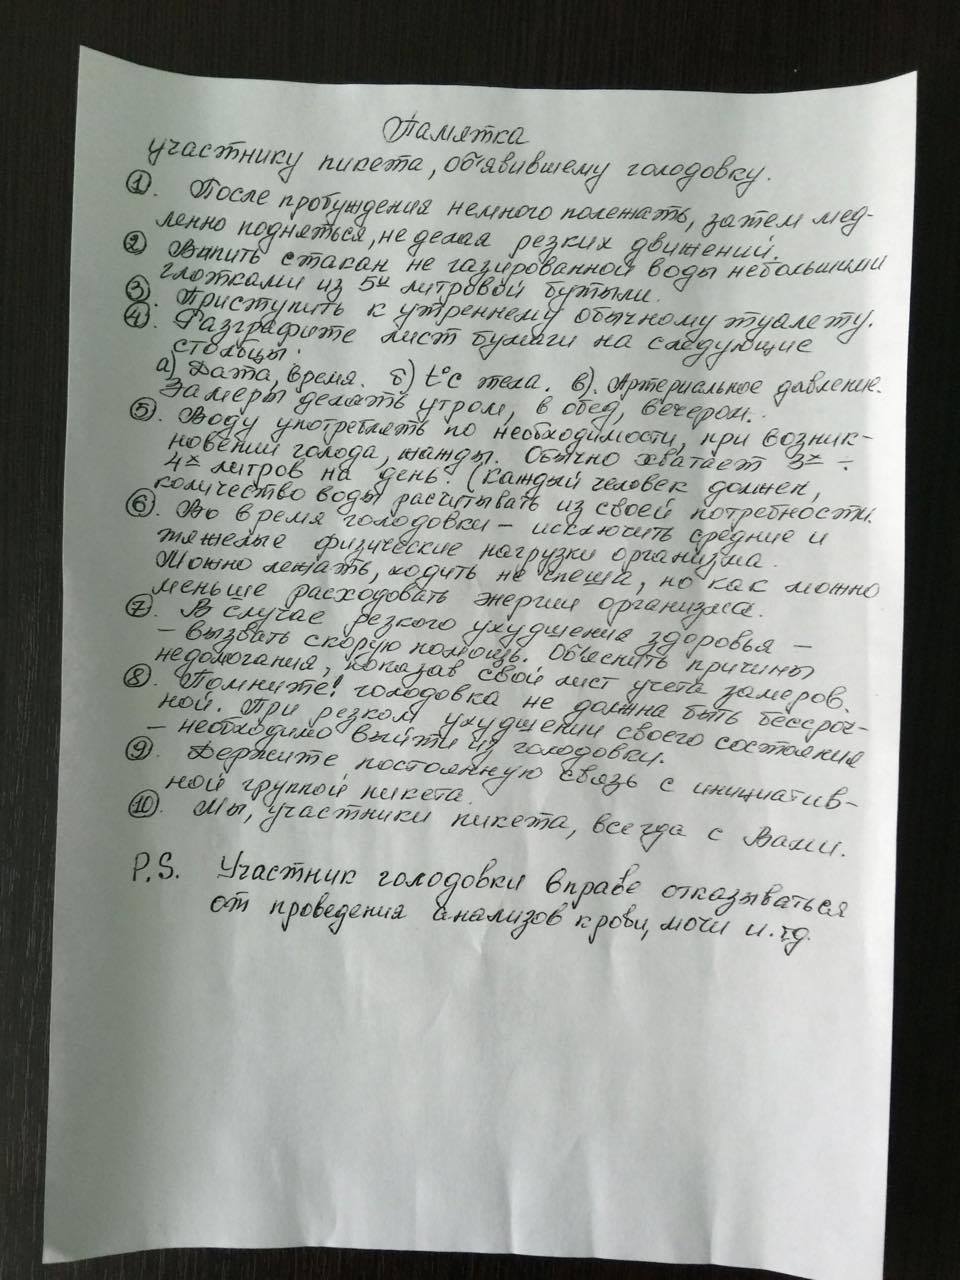 Памятка
участнику пикета, объявившему голодовку.
①. После пробуждения немного полежать, затем мед-
ленно подняться, не делая резких движений.
② Выпить стакан не газированной воды небольшими
глотками из 5и литровой бутыли.
③. Приступить к утреннему обычному туалету.
④. Разграфите лист бумаги на следующие
столбцы:
а) Дата, время. б) t°С тела. в). Артериальное давление.
Замеры делать утром, в обед, вечером.
⑤. Воду употреблять по необходимости, при возник-
новении голода, жажды. Обычно хватает 3х ÷
4х литров на день. (Каждый человек должен,
количество воды расчитывать из своей потребности.
⑥. Во время голодовки – исключить средние и
тяжелые физические нагрузки организма.
Можно лежать, ходить не спеша, но как можно
меньше расходовать энергии организма.
⑦. В случае резкого ухудшения здоровья –
– вызвать скорую помощь. Объяснить причины
недомогания, показав свой лист учета замеров.
⑧. Помните! голодовка не должна быть бессроч-
ной. При резком ухудшении своего состояния
– необходимо выйти из голодовки.
⑨. Держите постоянную связь с инициатив-
ной группой пикета.
⑩. Мы, участники пикета, всегда с Вами.
P.S. Участник голодовки вправе отказываться
от проведения анализов крови, мочи и.тд.